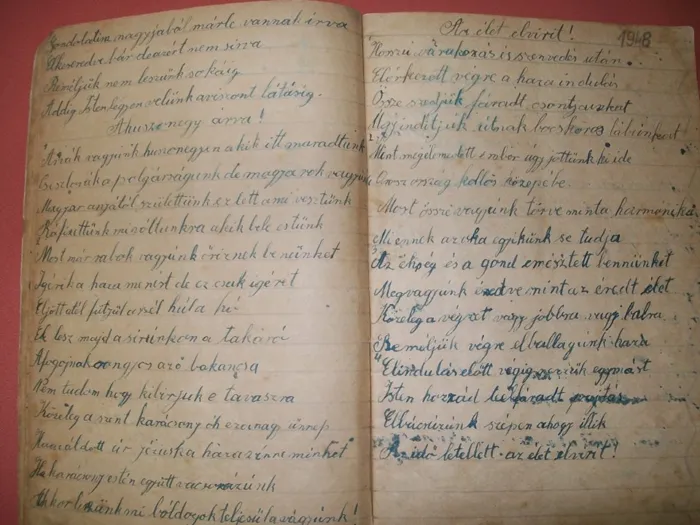 Gondolatim nagyjából már le vannak írva
Elkeseredve bár de azért nem sírva
Reméljük nem leszünk sokáig
Addig Isten legyen velünk a viszont látásig.
A huszonegy árva!
Árvák vagyunk huszonegyen a kik itt maradtunk
a polgárságunk de magyarok vagyunk
Magyar anyától születtünk ez lett a mi vesztünk
Ráfizettünk mi sóltunkra a kik bele estünk
Most már rabok vagyunk őriznek bennünket
Igérik a haza menést de ez csak igéret
Eljött a tél fütyül a szél húla hó
Ék lesz majd a sírunkon a takaró
A fogojnak rongyos a ző bakancsa
Nem tudom hogy kibírjuk e tavaszra
Közeleg a szent karácsony óh ez a nagy ünnep
Hozz áldott úr jézuska haza színre minket
Ha karácsony estén együtt vacsorázunk
Akkor leszünk mi bóldogok teljesül a vágyunk!
Az élet elvirít!
1948
Hosszú várakozás és szenvedés után
Elérkezett végre a haza indulás
Össze szedjük fáradt csontjainkat
Megindítjuk útnak bocskoros lábainkat
Mint megelemedett ember úgy jöttünk ki ide
Orosz ország kellős közepébe
Most össze vagyunk törve mint a harmónika
Mi ennek az oka egyikünk se tudja
Az éhség és a gond emésztett bennünket
Megvagyunk érve mint az érett élet
Közeleg a végzet vagy jobbra vagy balra
Reméljük végre elballagunk haza
Elindulás előtt végig nézzük egymást
Isten hozzád
Elbúcsúzunk szépen ahogy illik
Az idő letellett az élet elvirít!